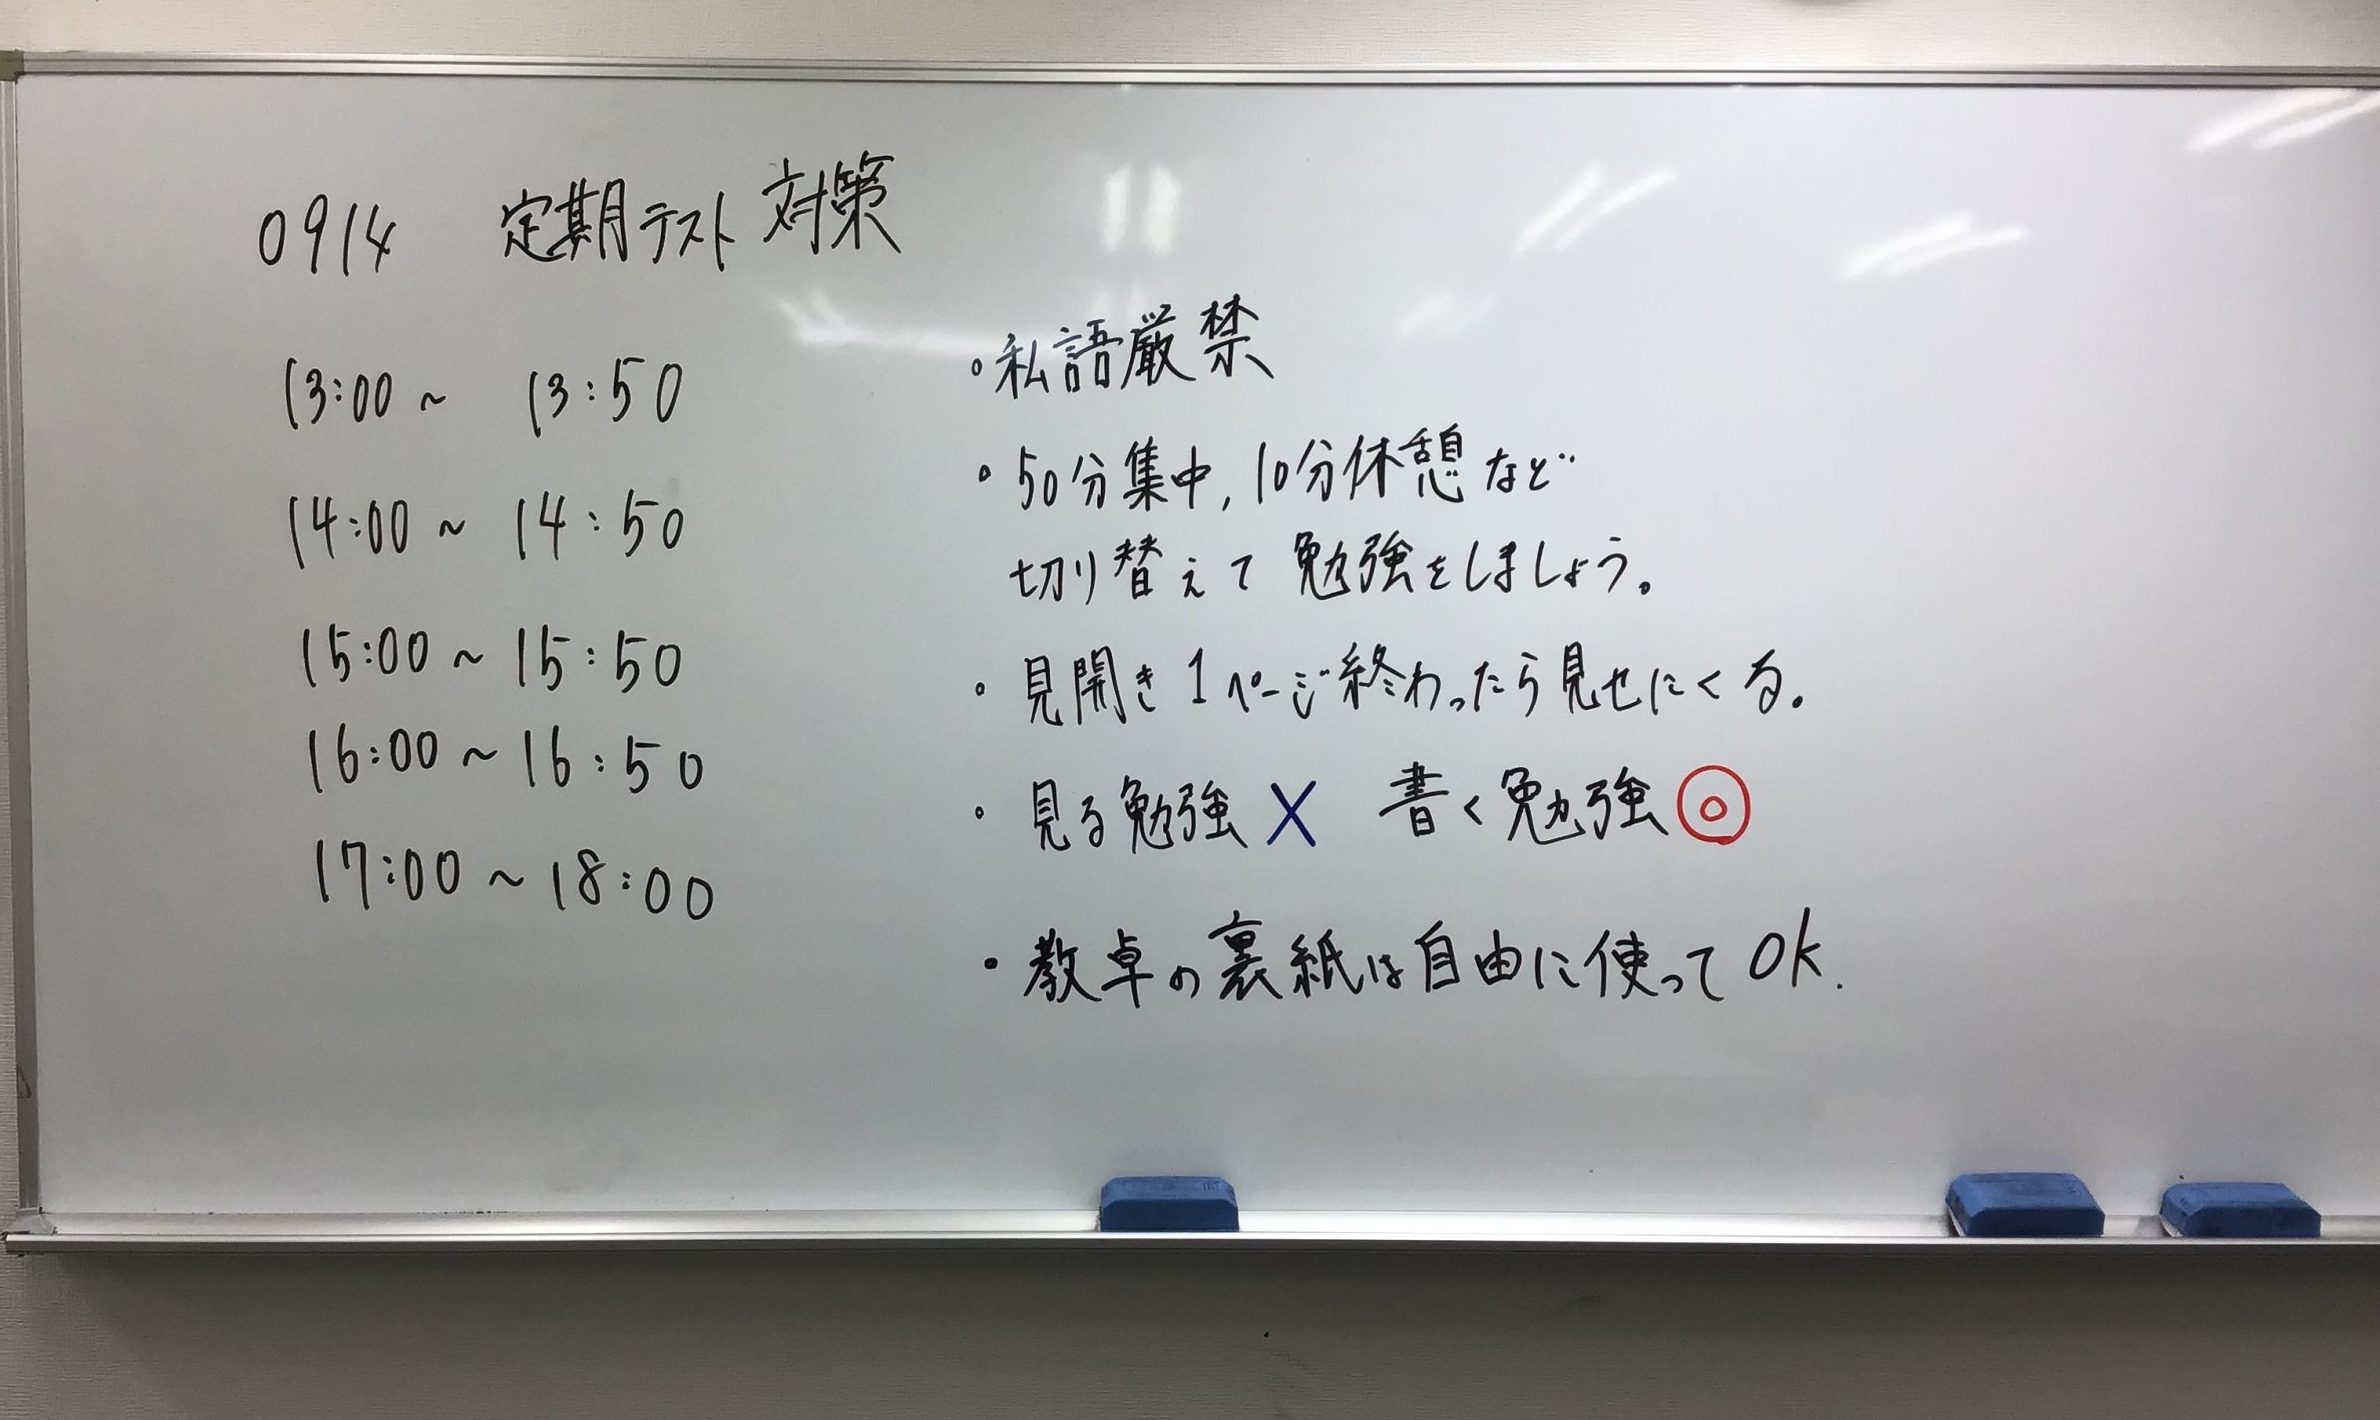 0914 定期テスト対策
13:00 ~ 13:50
14:00 ~ 14:50
15:00 ~ 15:50
16:00 ~ 16:50
17:00 ~ 18:00
・私語厳禁
・50分集中, 10分休憩など
切り替えて勉強をしましょう。
・見開き1ページ終わったら見せにくる。
・見る勉強 X 書く勉強 ◎
・教卓の裏紙は自由に使ってOK.